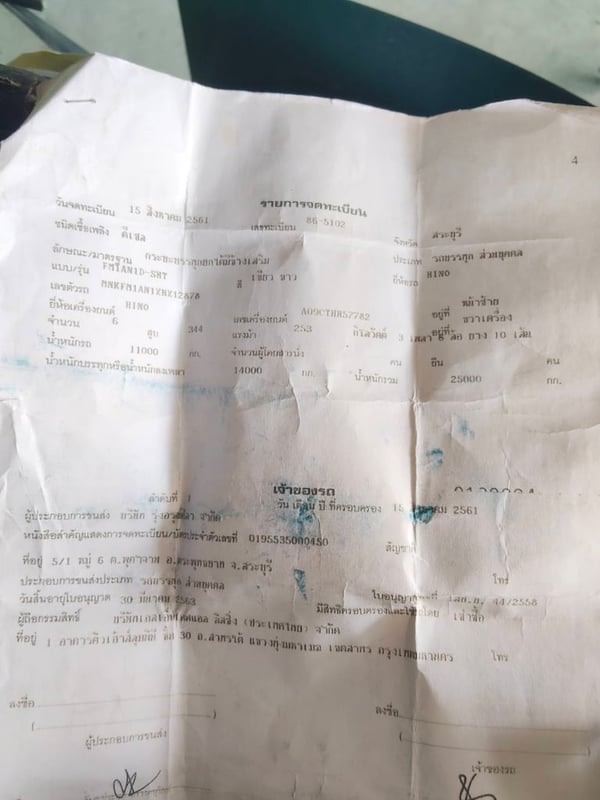 4
รายการจดทะเบียน
วันจดทะเบียน 15 สิงหาคม 2561 เลขทะเบียน 86-5102 จังหวัด สระบุรี
ชนิดเชื้อเพลิง ดีเซล ประเภท รถบรรทุก ส่วนบุคคล
ลักษณะ/มาตรฐาน กระบะบรรทุกยกได้มีข้างเสริม ยี่ห้อรถ HINO
แบบ/รุ่น FM1AN1D-SHT สี เขียว ขาว
เลขตัวรถ อยู่ที่ หน้าซ้าย
ยี่ห้อเครื่องยนต์ HINO เลขเครื่องยนต์ อยู่ที่ ขวาเครื่อง
จำนวน 6 สูบ 344 แรงม้า 253 กิโลวัตต์ 3 เพลา ล้อ ยาง 10 เส้น
น้ำหนักรถ 11000 กก. จำนวนผู้โดยสารนั่ง คน ยืน คน
น้ำหนักบรรทุกหรือน้ำหนักลงเพลา 14000 กก. น้ำหนักรวม 25000 กก.
เจ้าของรถ
ลำดับที่ 1 วัน เดือน ปี ที่ครอบครอง 15 2561
ผู้ประกอบการขนส่ง บริษัท จำกัด
หนังสือสำคัญแสดงการจดทะเบียน/บัตรประจำตัวเลขที่ 0195535000450 สัญชาติ
ที่อยู่ 5/1 หมู่ 6 จ.สระบุรี โทร
ประกอบการขนส่งประเภท รถบรรทุก ส่วนบุคคล ใบอนุญาต 44/2558
วันสิ้นอายุใบอนุญาต 30 มีนาคม 2563 มีสิทธิครอบครองและใช้รถโดย เช่าซื้อ
ผู้ถือกรรมสิทธิ์ ลิสซิ่ง (ประเทศไทย) จำกัด
ที่อยู่ 1 อาคารคิวเฮ้าส์ลุมพินี ชั้น 30 ถ.สาทรใต้ แขวงทุ่งมหาเมฆ เขตสาทร กรุงเทพมหานคร โทร
ลงชื่อ ลงชื่อ
( ) ( )
ผู้ประกอบการขนส่ง เจ้าของรถ